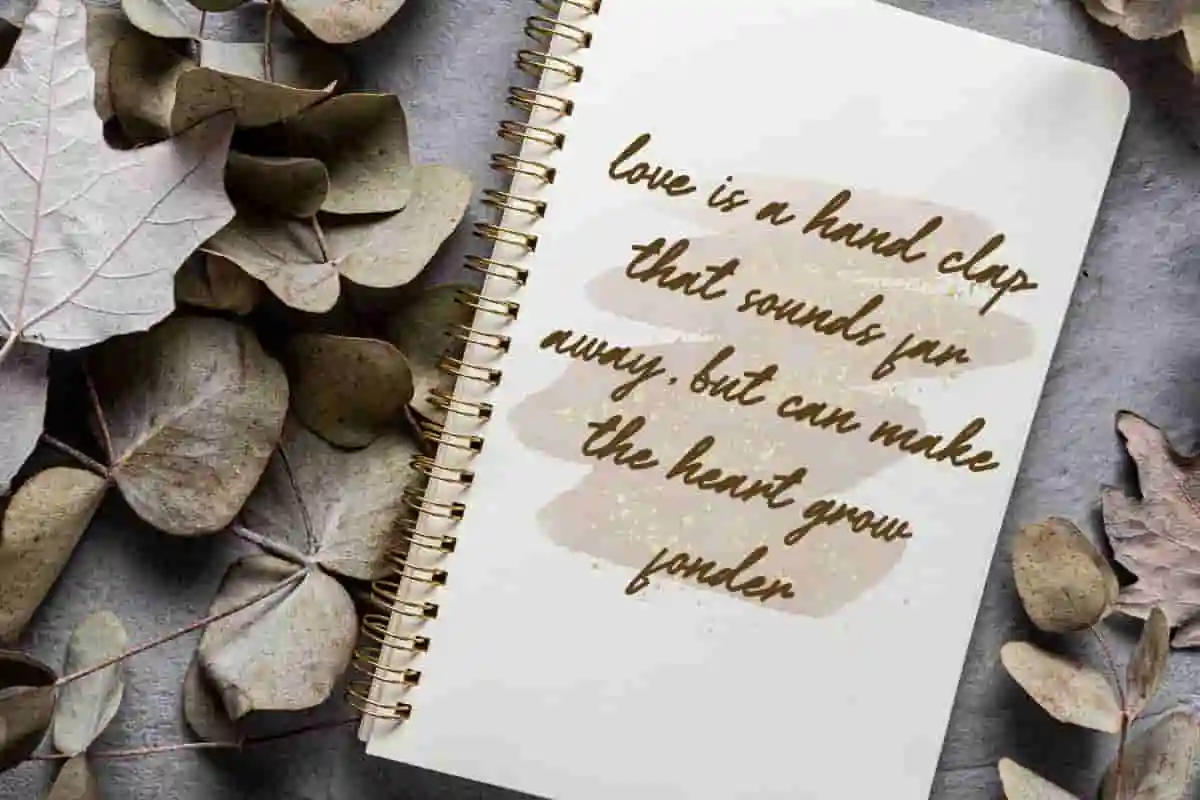 love is a hand clap
that sounds far
away, but can make
the heart grow
fonder